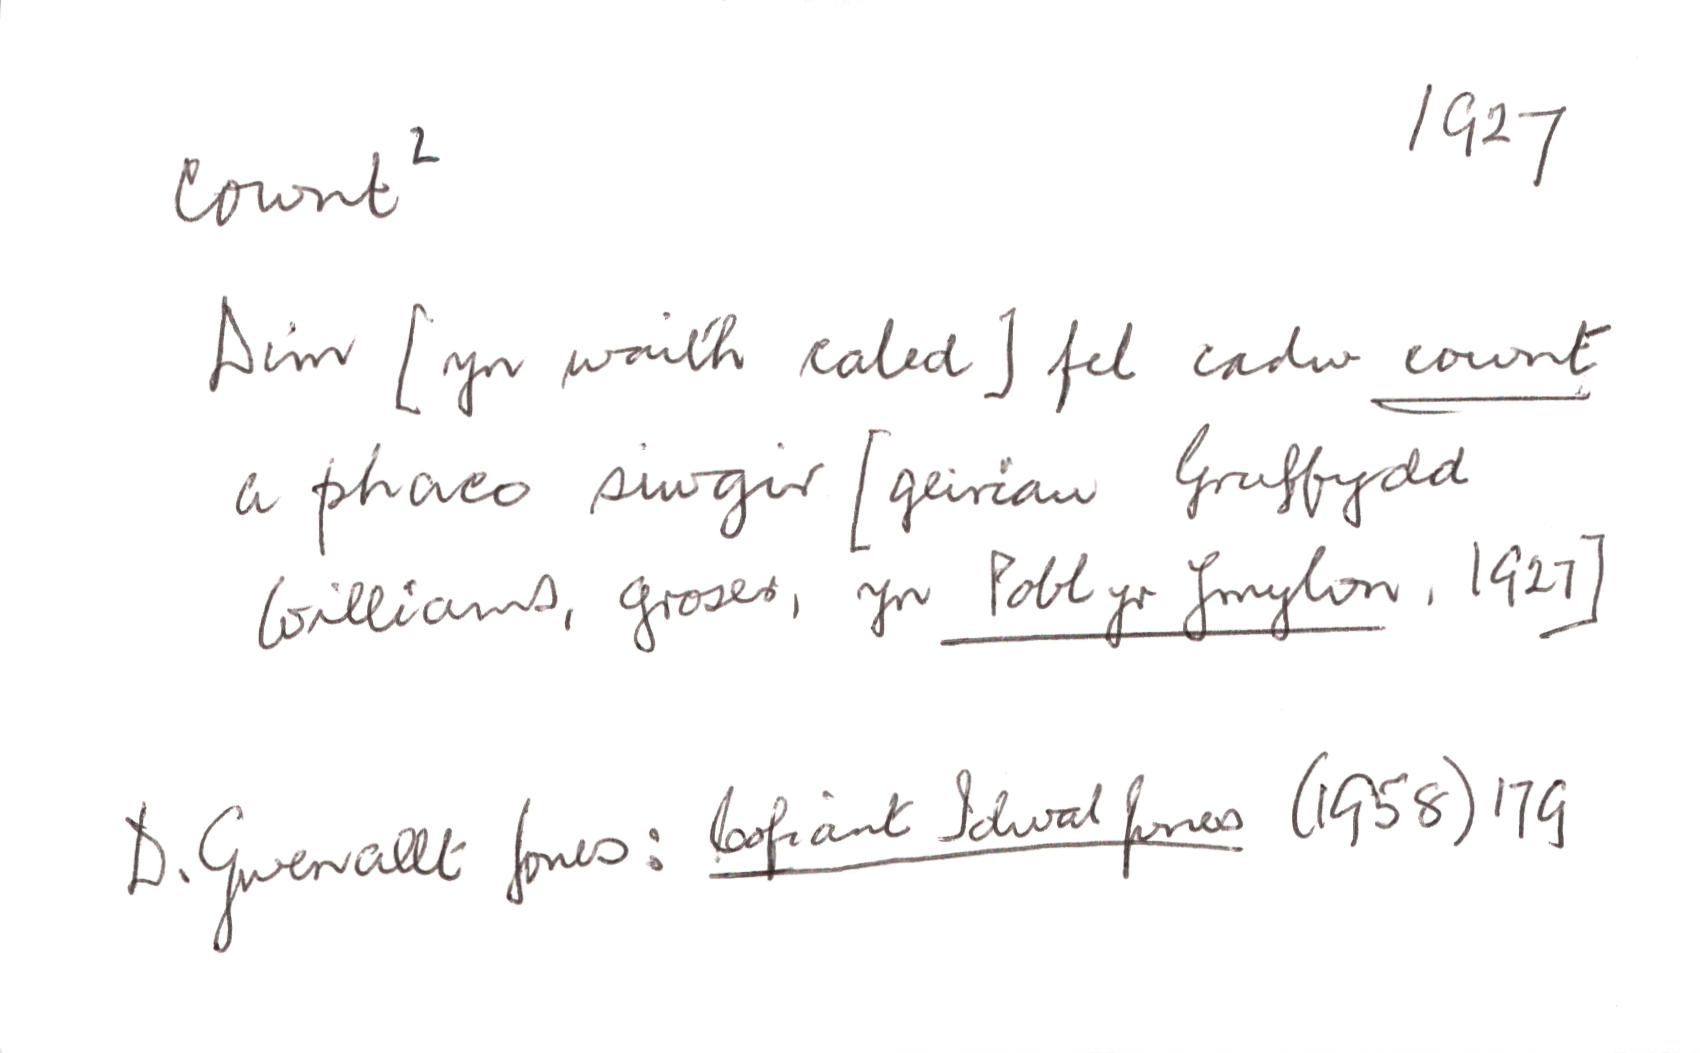 cownt² 1927
Dim [yn waith caled] fel cadw cownt
a phaco siwgir [geiriau Gruffydd
Williams, groser, yn Pobl yr Ymylon, 1927]
D. Gwenallt Jones: Cofiant Idwal Jones (1958) 179